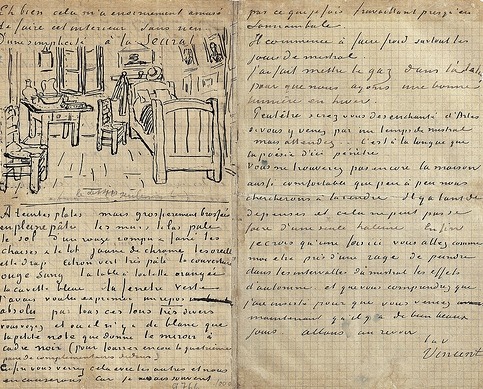 Eh bien cela m'a enormement amusé
de faire cet interieur sans rien
D'une simplicité à la Seurat
À teintes plates mais grossierement brossées
en pleine pâte les murs lilas pale
le sol d'un rouge rompu et fané les
chaises & le lit jaune de chrome les oreillers
et le drap citron vert très pâle la couverture
rouge sang la table à toilette orangée
la cuvette bleue la fenêtre verte
J'avais voulu exprimer un repos
absolu par tous ces tons très divers
vous voyez et où il n'y a de blanc que
la petite note que donne le miroir à
cadre noir (pour fourrer encore la quatrième
paire de complementaires dedans)
Enfin vous verrez cela avec les autres et nous
en causerons car je ne sais souvent
par ce que je fais travaillant presqu'en
somnambule
Il commence à faire froid surtout les
jours de mistral
J'ai fait mettre le gaz dans l'atelier
pour que nous ayons une bonne
lumiere en hiver
Peut être serez vous desenchanté d'Arles
si vous y venez par un temps de mistral
mais attendez ... C'est à la longue que
la poësie d'ici pénètre
Vous ne trouverez pas encore la maison
aussi comfortable que peu à peu nous
chercherons à la rendre Il y a tant de
depenses et cela ne peut pas se
faire d'une seule haleine Enfin
je crois qu'une fois ici vous allez comme
moi être pris d'une rage de peindre
dans les intervalles du mistral les effets
d'automne et que vous comprendrez que
j'ai insisté pour que vous veniez
maintenant qu'il y a de bien beaux
jours allons au revoir
t. à v.
Vincent